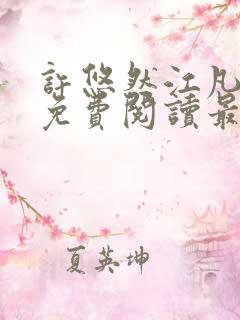 許悠然江凡
免費閱讀最
夏英坤